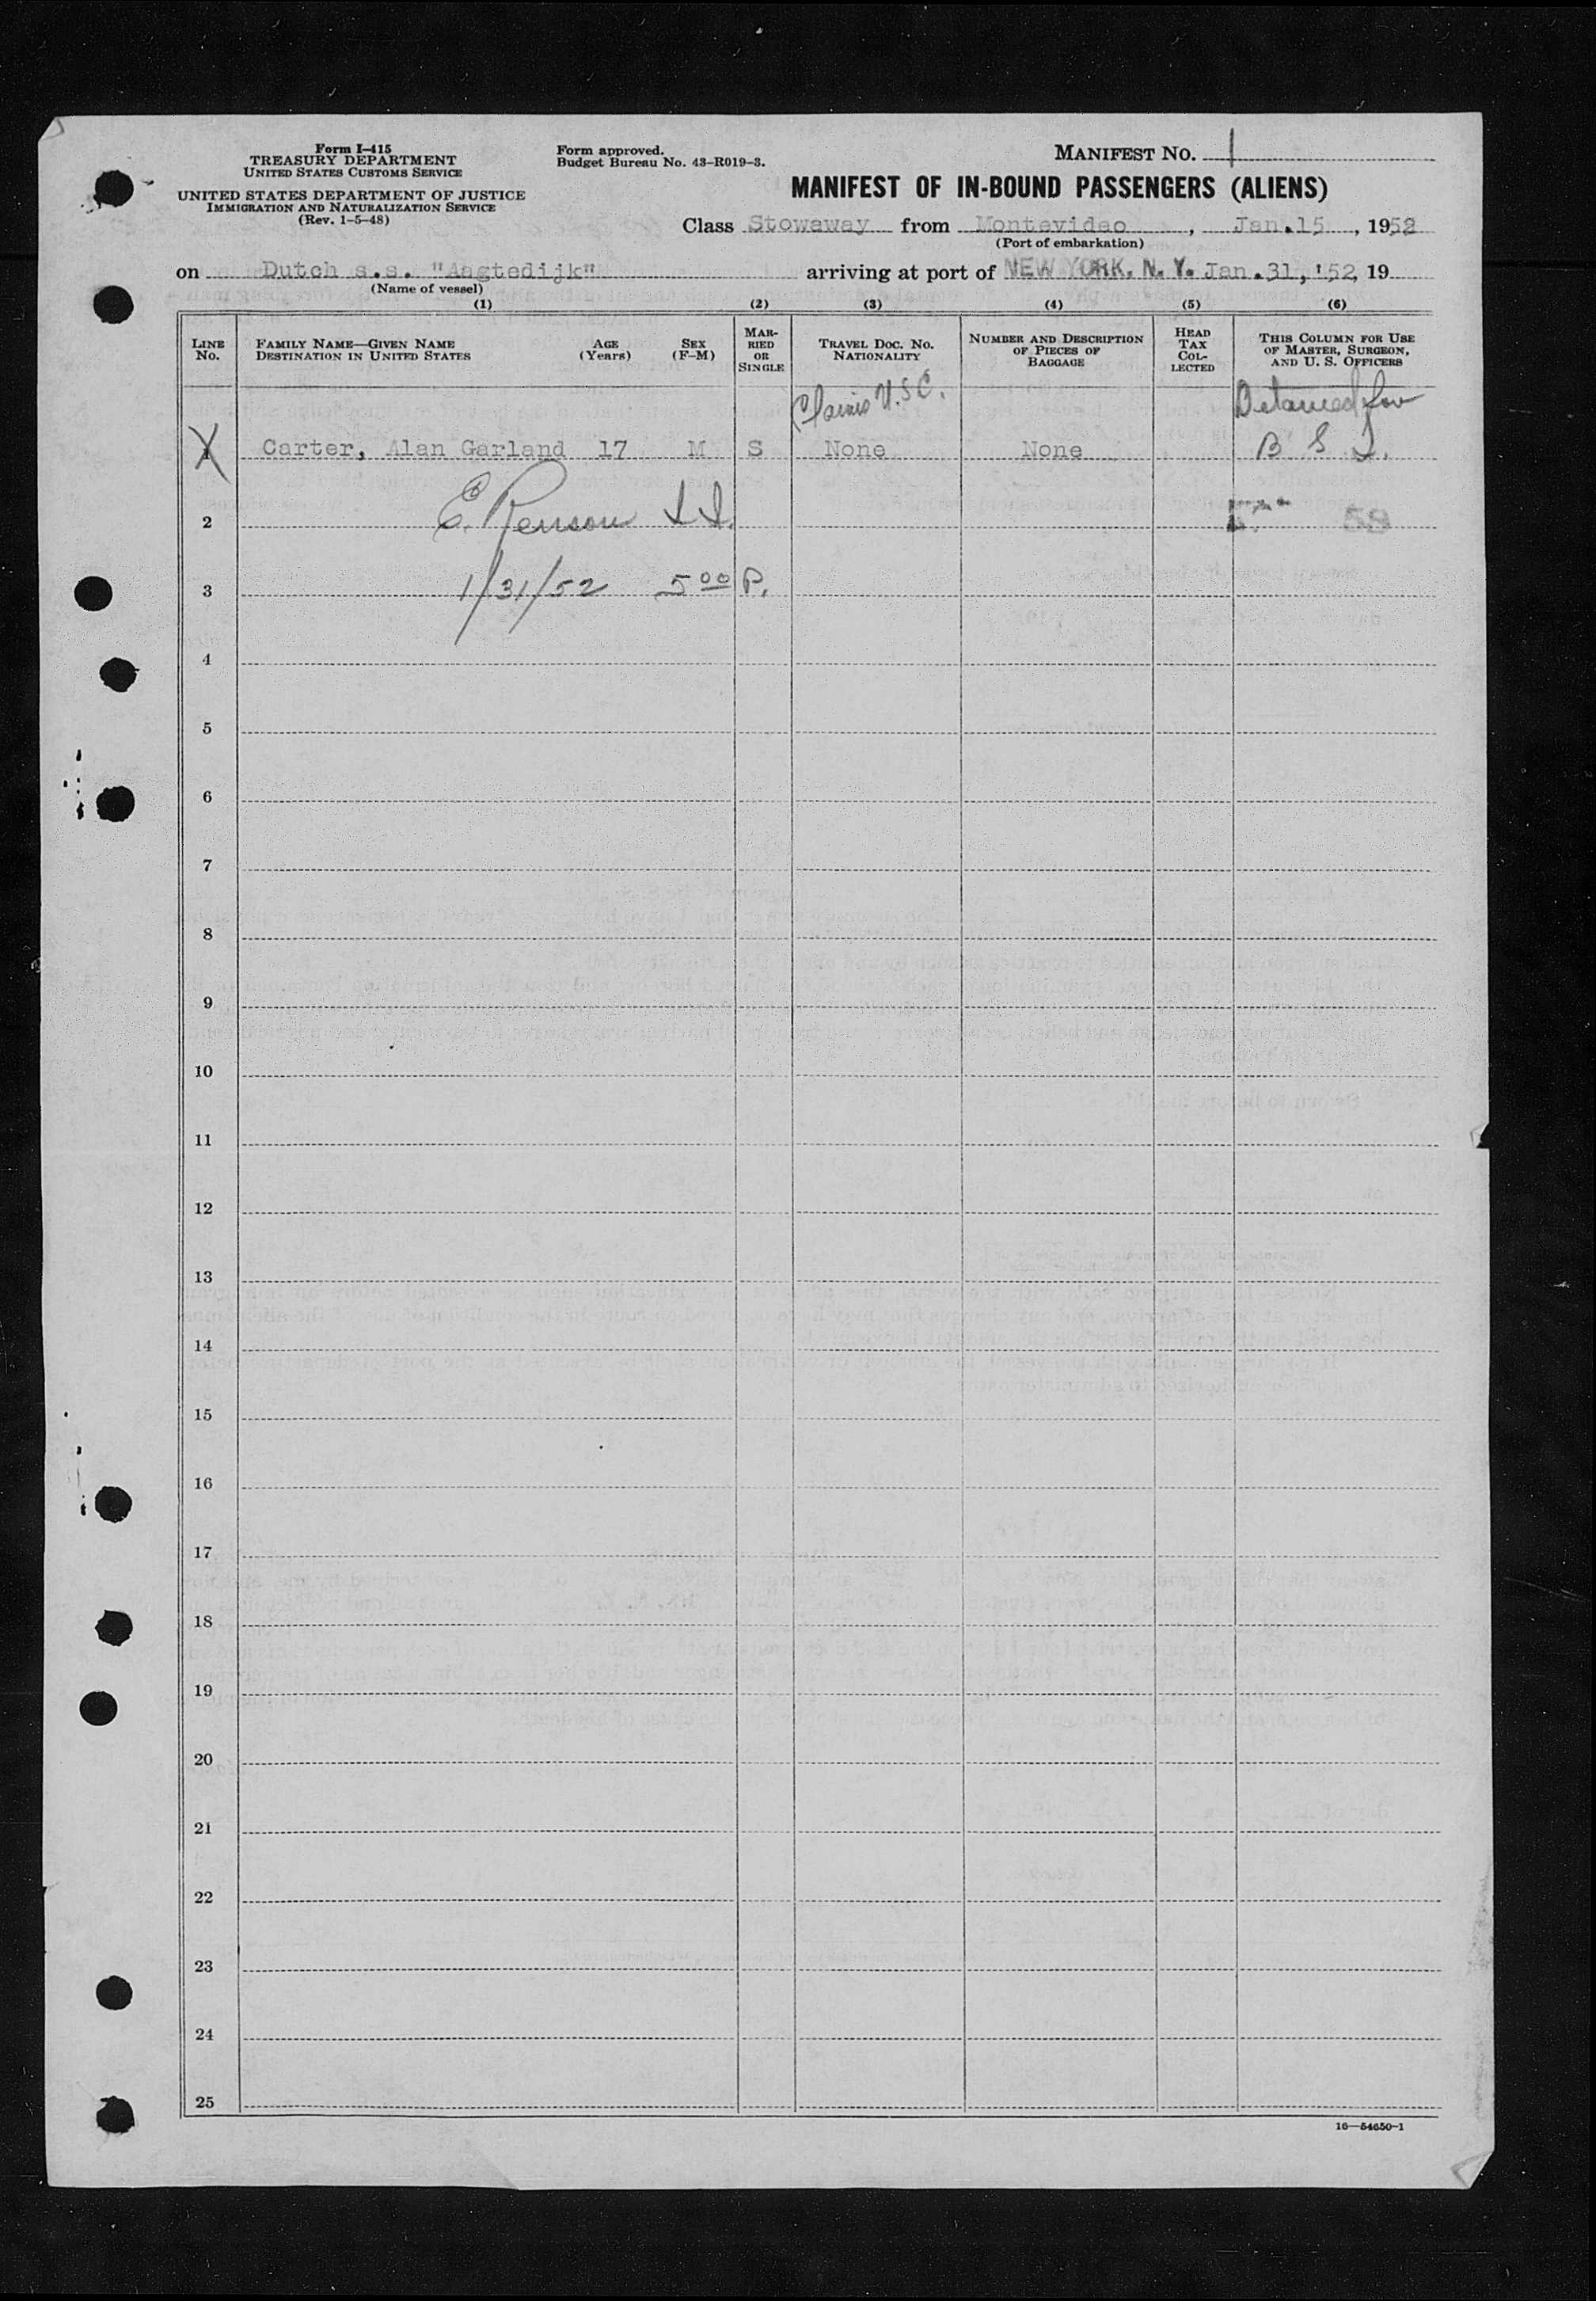 Form I-415
TREASURY DEPARTMENT
UNITED STATES CUSTOMS SERVICE
UNITED STATES DEPARTMENT OF JUSTICE
IMMIGRATION AND NATURALIZATION SERVICE
(Rev. 1-5-48)
Form approved.
Budget Bureau No. 43-R019-3.
MANIFEST NO. 1
MANIFEST OF IN-BOUND PASSENGERS (ALIENS)
Class Stowaway from Montevideo, Jan.15, 1952
(Port of embarkation)
on Dutch s.s. "Aagtedijk" arriving at port of NEW YORK, N. Y. Jan.31, '52, 19
(Name of vessel)
(1) (2) (3) (4) (5) (6)
LINE No.
FAMILY NAME—GIVEN NAME
DESTINATION IN UNITED STATES
AGE (Years)
SEX (F-M)
MARRIED OR SINGLE
TRAVEL DOC. NO. NATIONALITY
NUMBER AND DESCRIPTION OF PIECES OF BAGGAGE
HEAD TAX COLLECTED
THIS COLUMN FOR USE OF MASTER, SURGEON, AND U. S. OFFICERS
Claims U.S.C. Detained for
1 Carter, Alan Garland 17 M S None None B S I.
2 E. Renson I I.
3 1/31/52 5 00 P.
4
5
6
7
8
9
10
11
12
13
14
15
16
17
18
19
20
21
22
23
24
25
16—54650-1